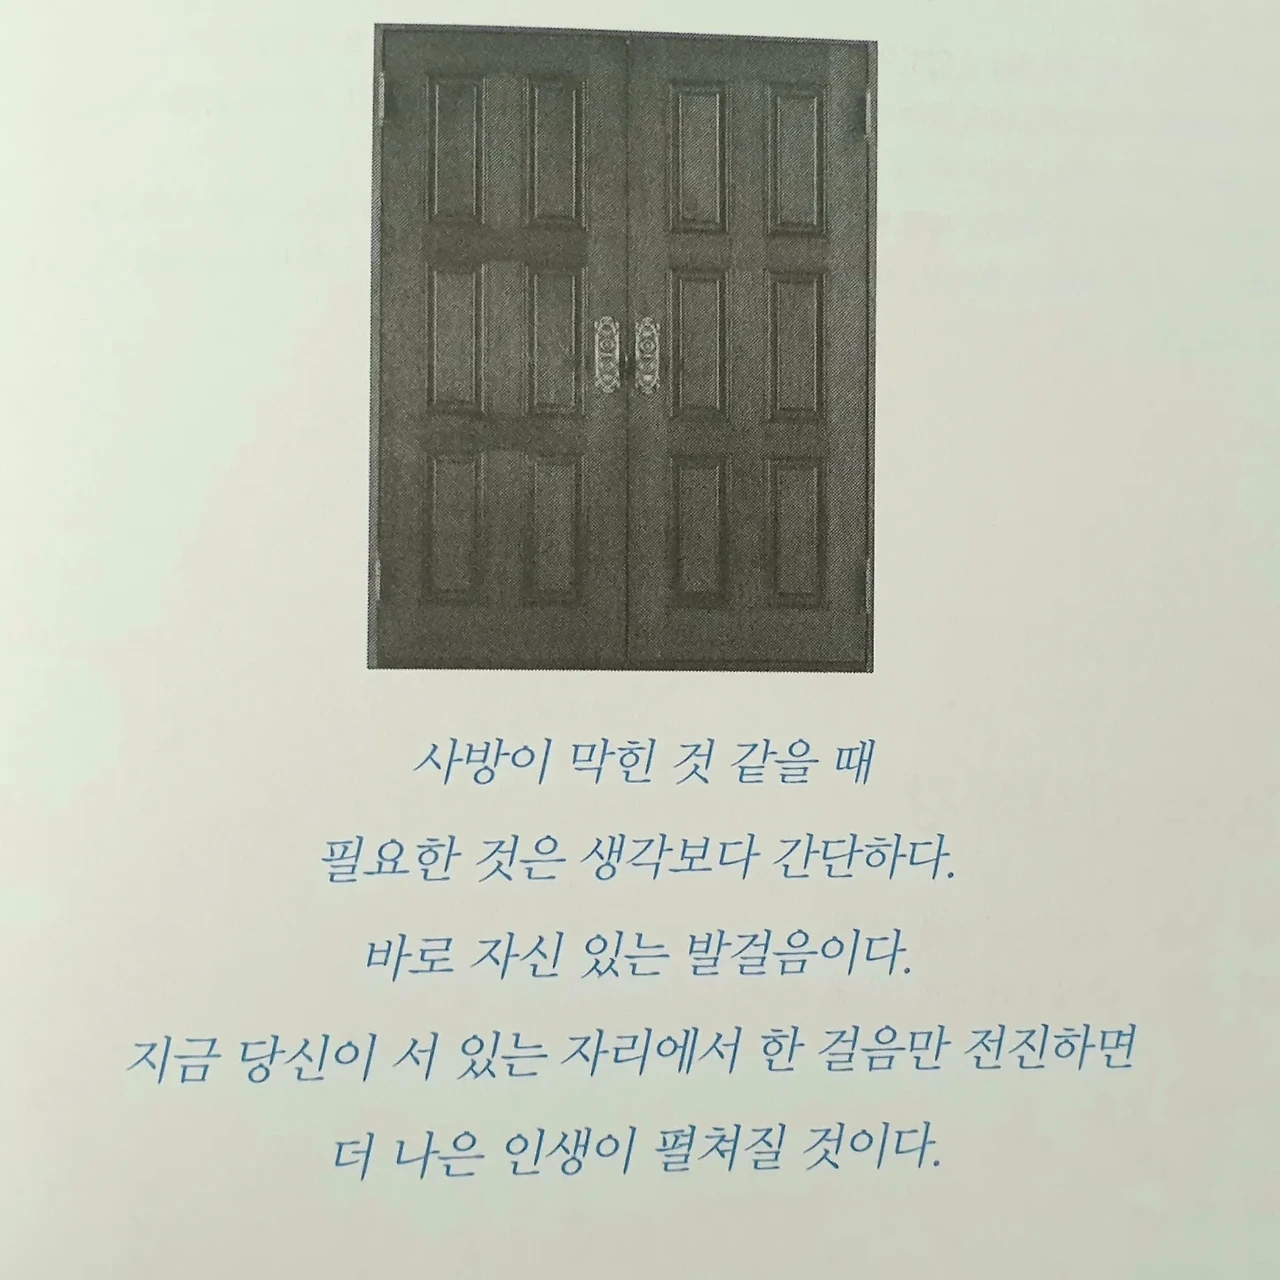 사방이 막힌 것 같을 때
필요한 것은 생각보다 간단하다.
바로 자신 있는 발걸음이다.
지금 당신이 서 있는 자리에서 한 걸음만 전진하면
더 나은 인생이 펼쳐질 것이다.